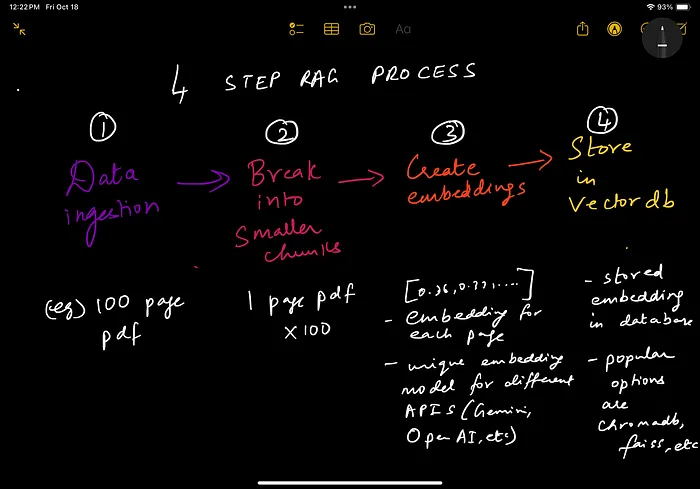 12:22PM Fri Oct 18
93%
Aa
4 STEP RAG PROCESS
1
Data
ingestion
2
Break
into
Smaller
chunks
3
Create
embeddings
4
Store
in
Vector db
(eg) 100 page
pdf
1 page pdf
x 100
[0.36, 0.771....]
- embedding for
each page
- unique embedding
model for different
APIs (Gemini,
Open AI, etc)
- stored
embedding
in database
- popular
options
are
chromadb,
faiss, etc